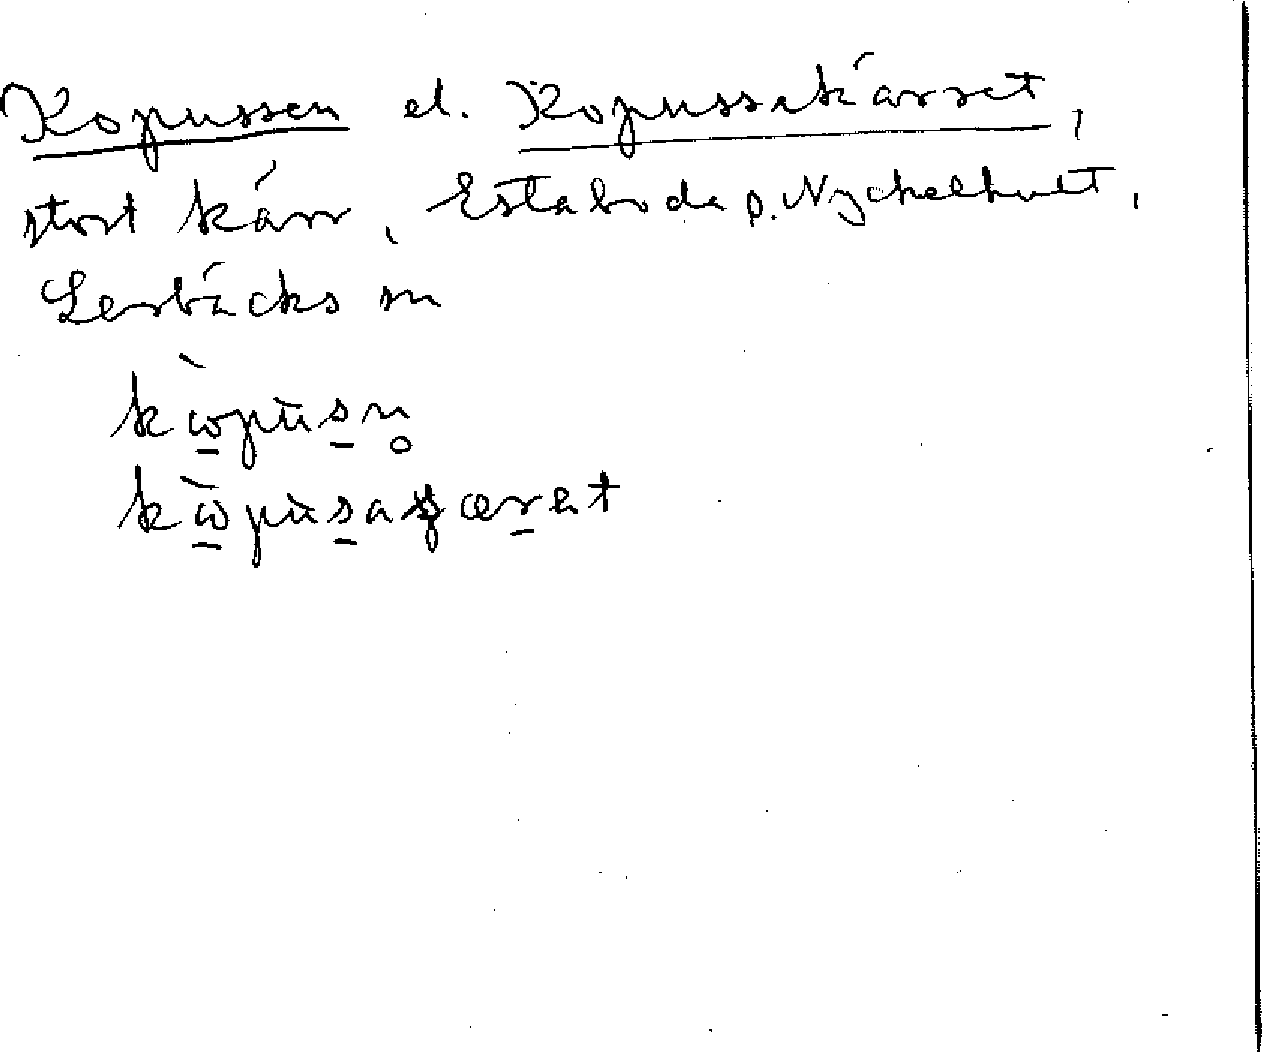 Kopussen el. Kopussakärret,
stort kärr, Estaboda p. Nyckelhult,
Lerbäcks sn
kὼpusn̥
kὼpusaɕæret